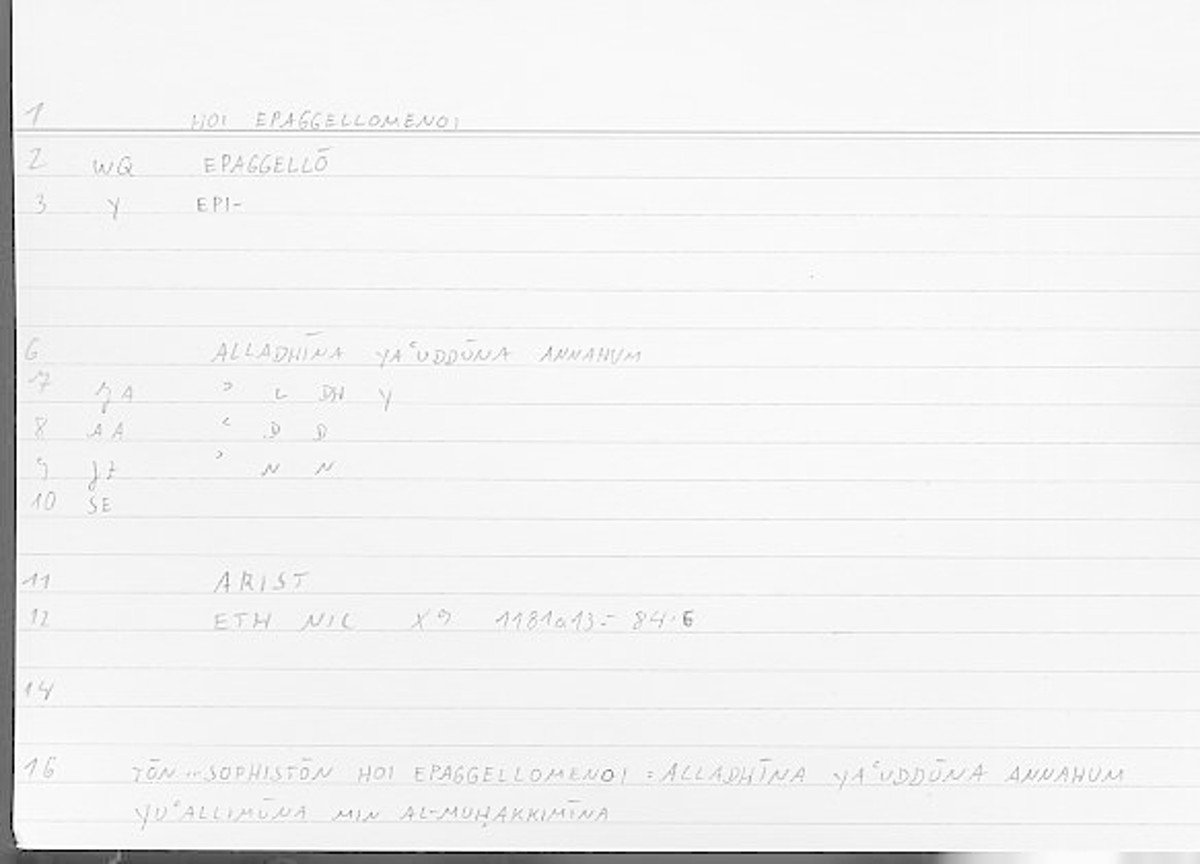 1 HOI EPAGGELLOMENOI
2 WQ EPAGGELLŌ
3 Y EPI-
6 ALLADHĪNA YAʿUDDŪNA ANNAHUM
7 ʾ L DH Y
8 AA ʿ D D
9 ʾ N N
10 SE
11 ARIST
12 ETH NIC X9 1181a13 = 84.6
14
16 TŌN ... SOPHISTŌN HOI EPAGGELLOMENOI = ALLADHĪNA YAʿUDDŪNA ANNAHUM
YUʿALLIMŪNA MIN AL-MUḤAKKIMĪNA